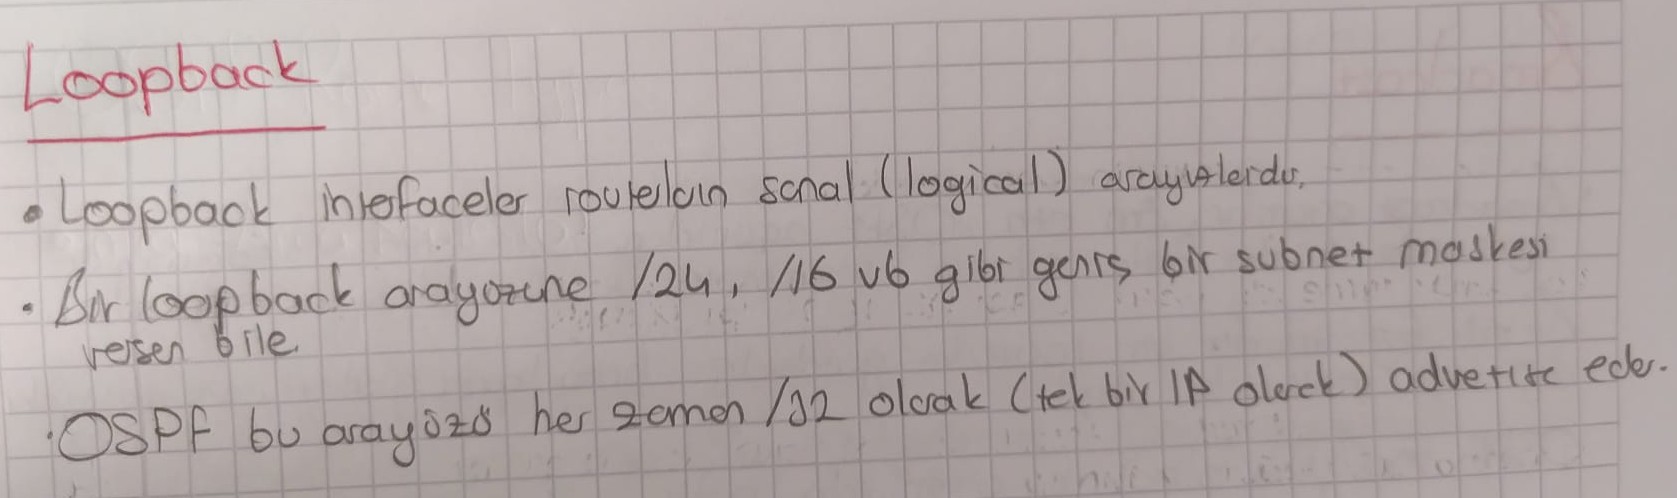 Loopback
• Loopback interfaceler routerların sanal (logical) arayüzlerdir.
• Bir loopback arayüzüne /24, /16 vb gibi geniş bir subnet maskesi
versen bile
• OSPF bu arayüzü her zaman /32 olarak (tek bir IP olarak) advertise eder.